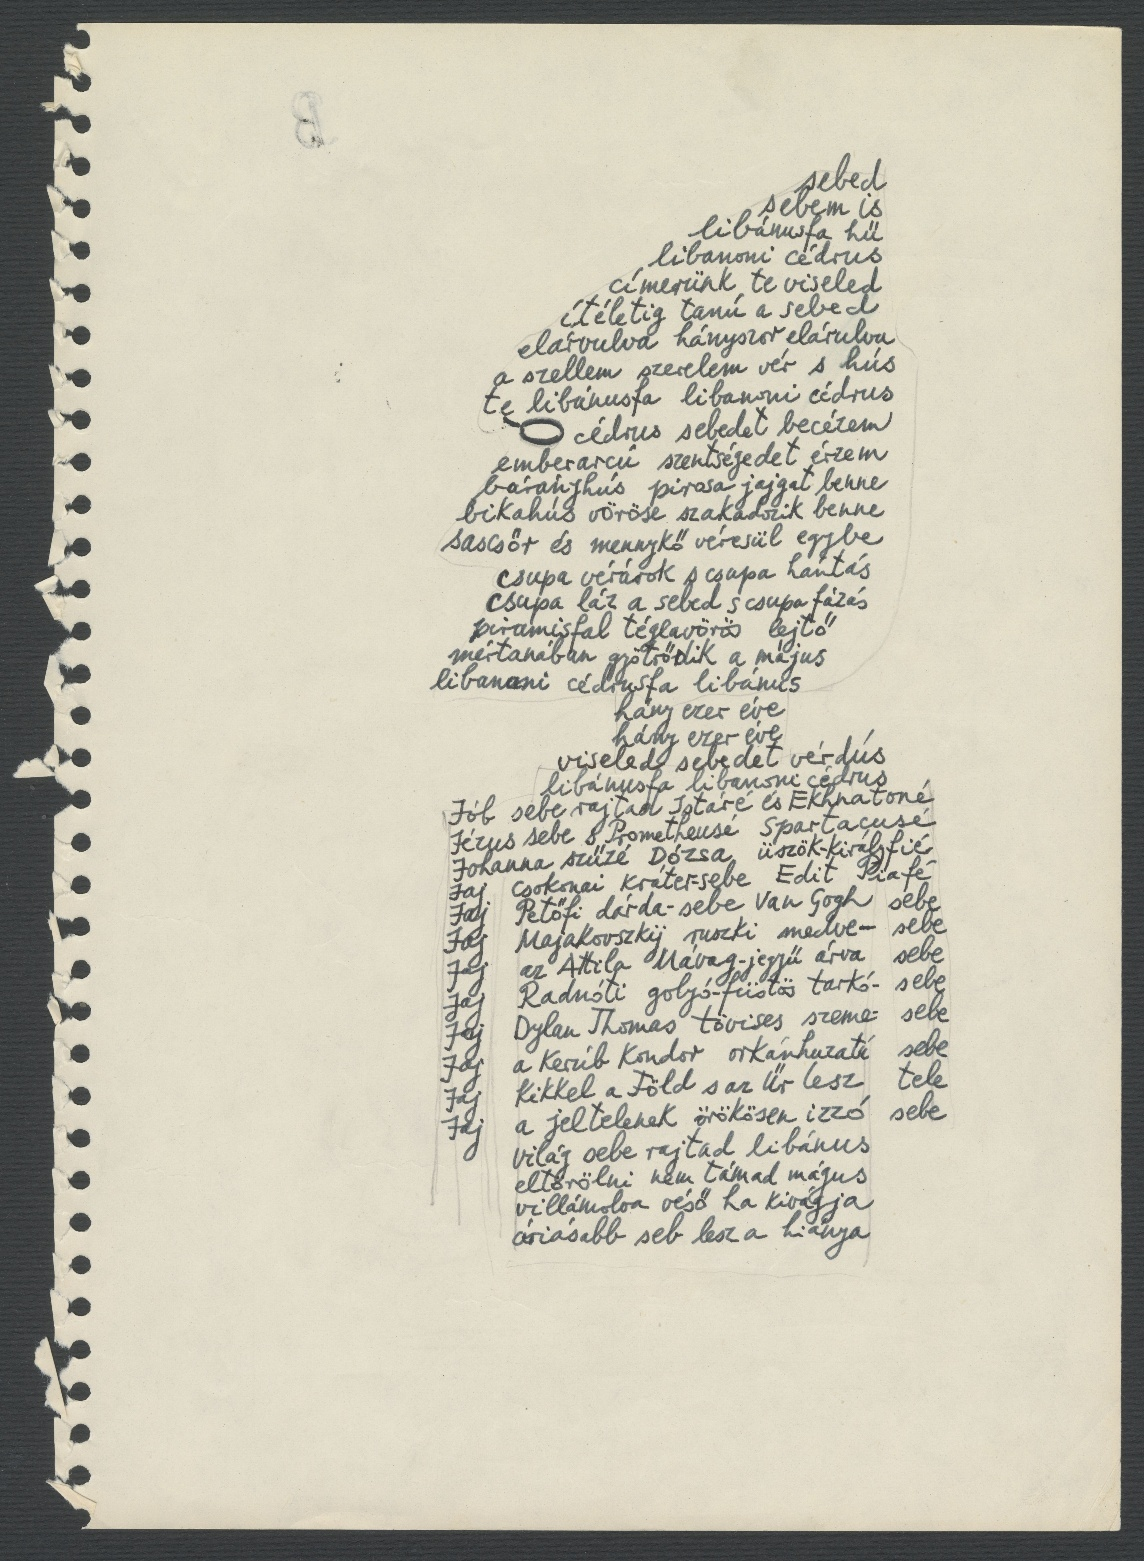 B
sebed
sebem is
libánusfa hű
libanoni cédrus
címerünk te viseled
ítéletig tanú a sebed
elárvulva hányszor elárulva
a szellem szerelem vér s hús
te libánusfa libanoni cédrus
Ó cédrus sebedet becézem
emberarcú szentségedet érzem
bárányhús pirosa jajgat benne
bikahús vöröse szakadozik benne
sascsőr és mennykő véresül egybe
csupa vérárok s csupa hántás
csupa láz a sebed s csupa fázás
piramisfal téglavörös lejtő
mértanában gyötrődik a május
libanoni cédrusfa libánus
hány ezer éve
hány ezer éve
viseled sebedet vérdús
libánusfa libanoni cédrus
Jób sebe rajtad Istáré és Ekhnatoné
Jézus sebe s Prometheusé Spartacusé
Johanna szűzé Dózsa üszök-királyfié
Jaj Csokonai kráter-sebe Edit Piafé
Jaj Petőfi dárda-sebe Van Gogh sebe
Jaj Majakovszkij ruszki medve- sebe
Jaj az Attila Mávag-jegyű árva sebe
Jaj Radnóti golyó-füstös tarkó- sebe
Jaj Dylan Thomas tövises szeme- sebe
Jaj a Kerúb Kondor orkánhuzatú sebe
Jaj Kikkel a Föld s az Űr lesz tele
Jaj a jeltelenek örökösen izzó sebe
világ sebe rajtad libánus
eltörölni nem támad mágus
villámolva véső ha kivágja
óriásabb seb lesz a hiánya